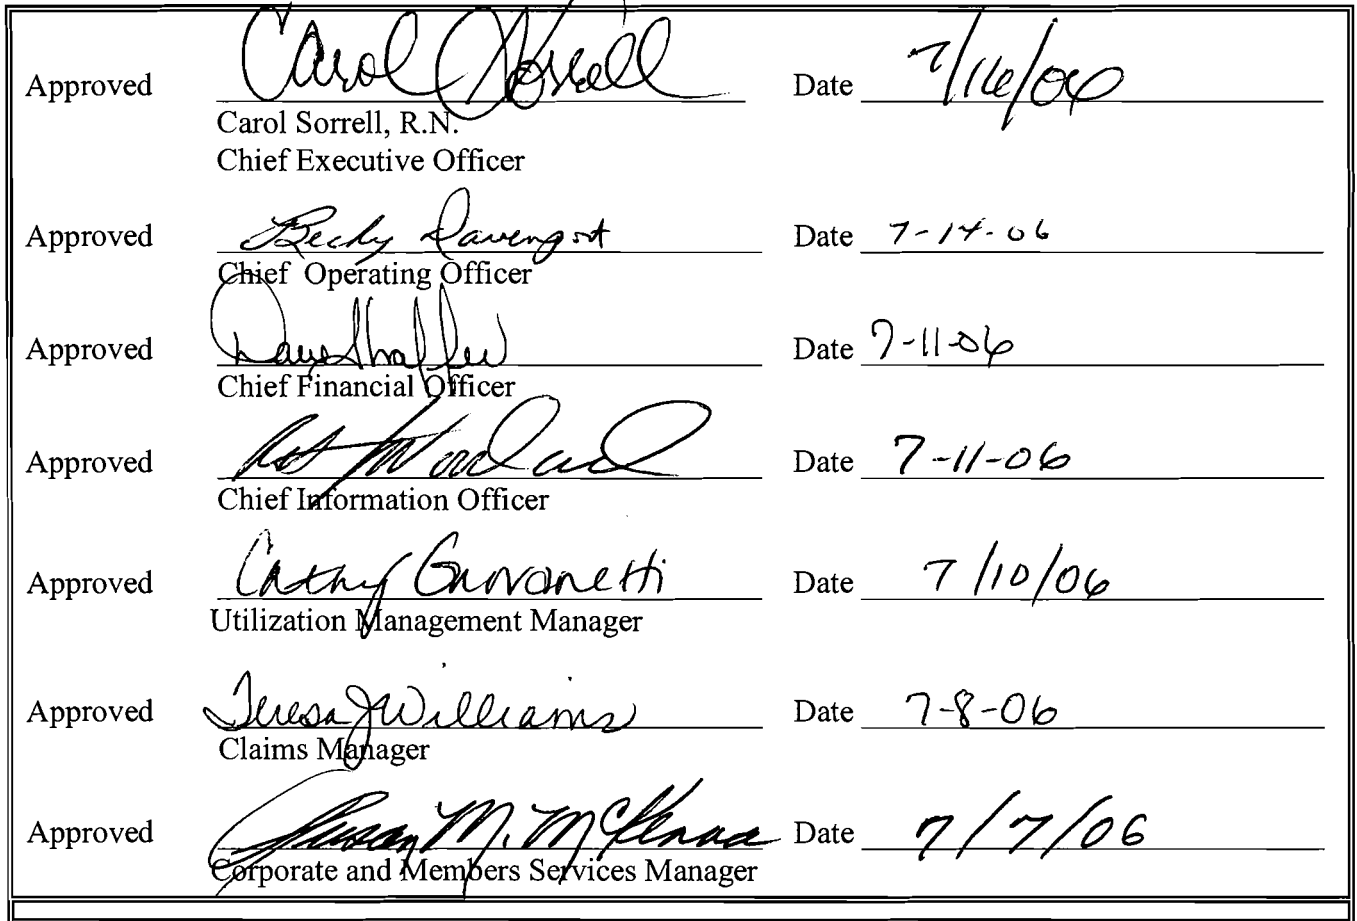 Approved Carol Sorrell Date 7/16/06
Carol Sorrell, R.N.
Chief Executive Officer
Approved Becky Davenport Date 7-14-06
Chief Operating Officer
Approved Dave Shaffer Date 7-11-06
Chief Financial Officer
Approved Woodard Date 7-11-06
Chief Information Officer
Approved Cathy Giovanetti Date 7/10/06
Utilization Management Manager
Approved Teresa J Williams Date 7-8-06
Claims Manager
Approved Susan M. McKenna Date 7/7/06
Corporate and Members Services Manager